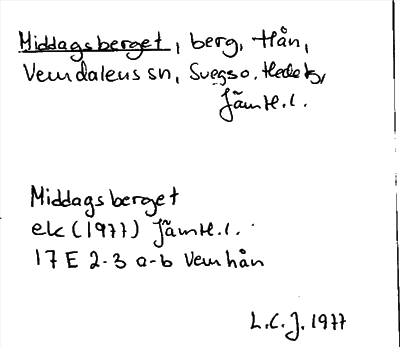 Middagsberget, berg, Hån,
Vemdalens sn, Svegs o. Hede tg,
Jämtl. l.
Middagsberget
ek (1977) Jämtl. l.
17 E 2-3 a-b Vemhån
L.C.J. 1977